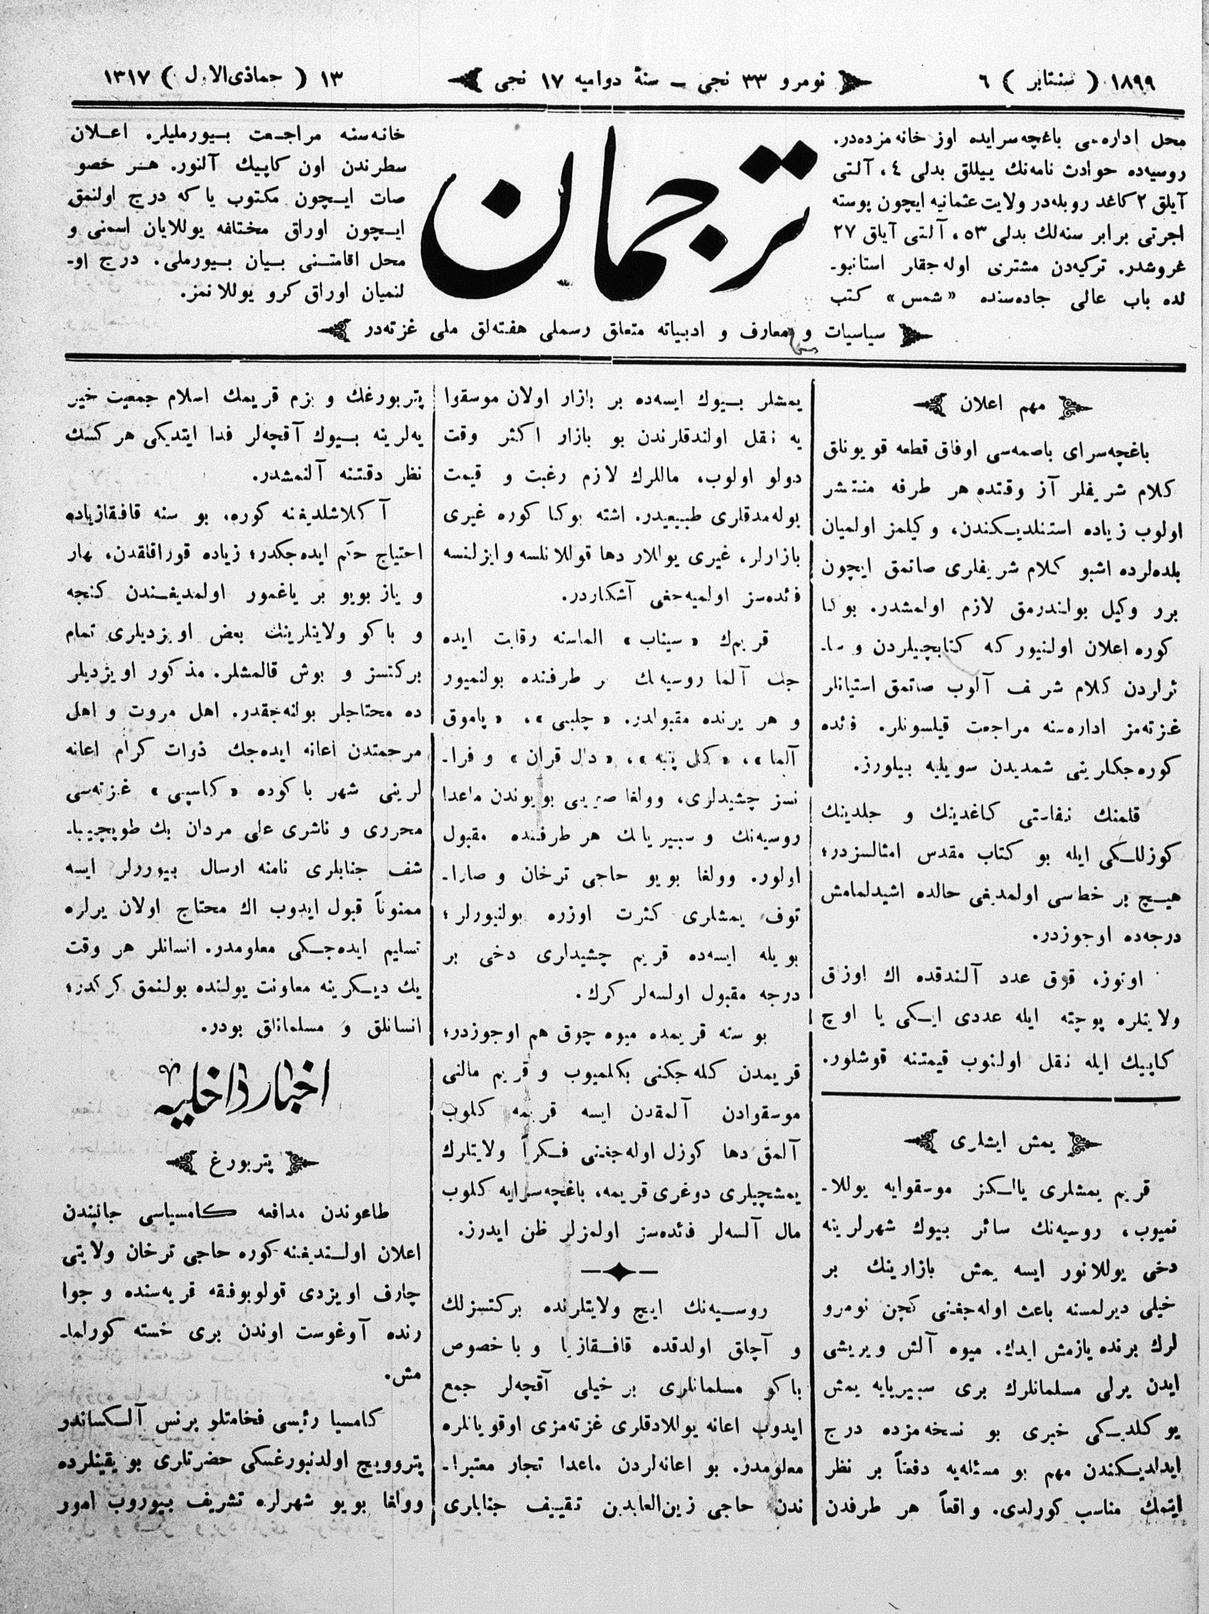 ١٨٩٩ ( سنتابر ) ٦
نومرو ٣٣ نجی ــ سنهٔ دوامیه ١٧ نجی
١٣ ( جماذی‌الاول ) ١٣١٧
محل اداره‌سی باغچه‌سرایده اوز خانه مزده‌در.
روسیه‌ده حوادث نامه‌نك ییللق بدلی ٤، آلتی
آیلق ٢ کاغد روبله‌در ولایت عثمانیه ایچون پوسته
اجرتی برابر سنه‌لك بدلی ٥٣، آلتی آیلق ٢٧
غروشدر. ترکیه‌دن مشتری اوله‌جقلر استانبو-
لده باب عالی جاده‌سنده «شمس» کتب
ترجمان
خانه‌سنه مراجعت بیورملیلر. اعلان
سطرندن اون کاپیك آلنور. هر خصو
صات ایچون مکتوب یا که درج اولنمق
ایچون اوراق مختلفه یوللایان اسمنی و
محل اقامتنی بیان بیورملی. درج او-
لنمیان اوراق کرو یوللانمز.
سیاسیات و معارف و ادبیاته متعلق رسملی هفته‌لق ملی غزته‌در
مهم اعلان
باغچه‌سرای باصمه‌سی اوفاق قطعه قویونلق
کلام شریفلر آز وقتده هر طرفه منتشر
اولوب زیاده استنلدیکندن، وکیلمز اولمیان
بلده‌لرده اشبو کلام شریفلری صاتمق ایچون
برر وکیل بولندرمق لازم اولمشدر. بوکا
کوره اعلان اولنیور که کتابچیلردن و سا-
ئراردن کلام شریف آلوب صاتمق استیانلر
غزته‌مز اداره‌سنه مراجعت قیلسونلر. فائده
کوره‌جکلرینی شمدیدن سویلیه بیلورز.
قلمنك نفاستی کاغدینك و جلدینك
کوزللکی ایله بو کتاب مقدس امثالسزدر؛
هیچ بر خطاسی اولمدیغی حالده اشیدلمامش
درجه‌ده اوجوزدر.
اوتوز، قرق عدد آلندقده اك اوزق
ولایتلره پوچته ایله عددی ایکی یا اوچ
کاپیك ایله نقل اولنوب قیمتنه قوشلور.
یمش ایشلری
قریم یمشلری یالکز موسقوایه یوللا-
نمیوب، روسیه‌نك سائر بیوك شهرلرینه
دخی یوللانور ایسه یمش بازارینك بر
خیلی دیرلمسنه باعث اوله‌جغنی کچن نومرو
لرك برنده یازمش ایدك. میوه آلش ویریشی
ایدن یرلی مسلمانلرك بری سبیریایه یمش
یوکلدیکی خبری بو نسخه‌مزده درج
ایدلدیکندن مهم بو مسئله‌یه دفعتاً بر نظر
ایتمك مناسب کورلدی. واقعاً هر طرفدن
یمشلر بیوك ایسه‌ده بر بازار اولان موسقوا
یه نقل اولندقلرندن بو بازار اکثر وقت
دولو اولوب، ماللرك لازم رغبت و قیمت
بوله‌مدقلری طبیعیدر. اشته بوکا کوره غیری
بازارلر، غیری یوللار دها قوللانلسه و ایزلنسه
فائده‌سز اولمیه‌جغی آشکاردر.
قریم‌ك «سیناب» الماسنه رقابت ایده
جك آلما روسیه‌نك بر طرفنده بولنمیور
و هر یرنده مقبولدر. «چلبی»، «پاموق
آلما»، «کل پنبه»، «دل قران» و فرا-
نسز چشیدلری، وولغا صویی بویوندن ماعدا
روسیه‌نك و سبیریانك هر طرفنده مقبول
اولور. وولغا بویو حاجی ترخان و صارا-
توف یمشلری کثرت اوزره بولنیورلر؛
بویله ایسه‌ده قریم چشیدلری دخی بر
درجه مقبول اولسه‌لر کرك.
بو سنه قریمده میوه چوق هم اوجوزدر؛
قریمدن کله‌جکنی بکلمیوب و قریم مالنی
موسقوادن آلمقدن ایسه قریمه کلوب
آلمق دها کوزل اوله‌جغنی فکراً ولایتلرك
یمشچیلری دوغری قریمه، باغچه‌سرایه کلوب
مال آلسه‌لر فائده‌سز اولمزلر ظن ایدرز.
روسیه‌نك ایچ ولایتلرنده برکتسزلك
و آچلق اولدقده قافقازیا و باخصوص
باکو مسلمانلری بر خیلی آقچه‌لر جمع
ایدوب اعانه یوللادقلری غزته‌مزی اوقویانلره
معلومدر. بو اعانه‌لردن ماعدا تجار معتبرا-
ندن حاجی زین‌العابدین تقییف جنابلری
پتربورغك و بزم قریمك اسلام جمعیت خیر
یه‌لرینه بیوك آقچه‌لر فدا ایتدیکی هرکسك
نظر دقتنه آلنمشدر.
آکلاشلدیغنه کوره، بو سنه قافقازیاده
احتیاج حکم ایده‌جکدر؛ زیاده قوراقلقدن، بهار
و یاز بویو بر یاغمور اولمدیغندن کنجه
و باکو ولایتلرینك بعض اویزدیلری تمام
برکتسز و بوش قالمشلر. مذکور اویزدیلر
ده محتاجلر بولنه‌جقدر. اهل مروت و اهل
مرحمتدن اعانه ایده‌جك ذوات کرام اعانه
لرینی شهر باکوده «کاسپی» غزته‌سی
محرری و ناشری علی مردان بك طوپچیبا-
شف جنابلری نامنه ارسال بیورورلر ایسه
ممنوناً قبول ایدوب اك محتاج اولان یرلره
تسلیم ایده‌جکی معلومدر. انسانلر هر وقت
یك دیکرینه معاونت یولنده بولنمق کرکدر؛
انسانلق و مسلمانلق بودر.
اخبار داخلیه
پتربورغ
طاعوندن مدافعه کامسیاسی جانبندن
اعلان اولندیغنه کوره حاجی ترخان ولایتی
چارف اویزدی قولوبوفقه قریه‌سنده و جوا
رنده آوغوست اوندن بری خسته کورلما-
مش.
کامسیا رئیسی فخامتلو پرنس آلکساندر
پتروویچ اولدنبورغسکی حضرتلری بو یقینلرده
وولغا بویو شهرلره تشریف بیوروب امور